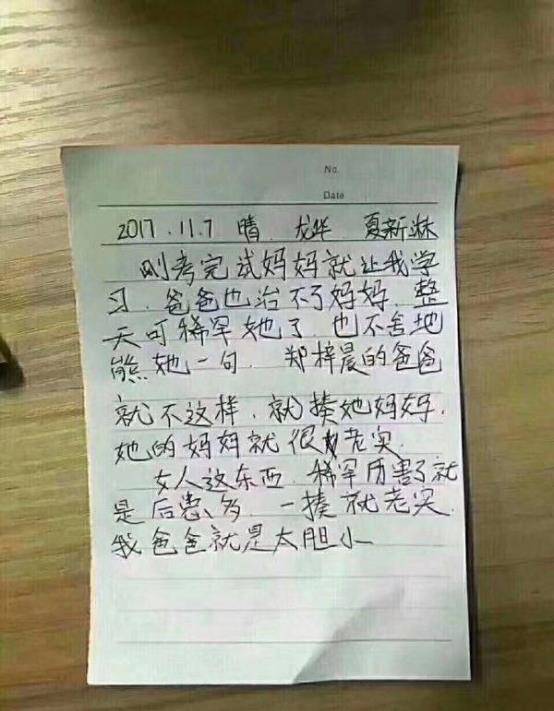 No.
Date
2017.11.7 晴 龙华 夏新淋
刚考完试妈妈就让我学
习.爸爸也治不了妈妈.整
天可稀罕她了.也不舍地
熊她一句. 郑梓晨的爸爸
就不这样.就揍她妈妈.
她的妈妈就很老实.
女人这东西.稀罕厉害了就
是后患多.一揍就老实.
我爸爸就是太胆小